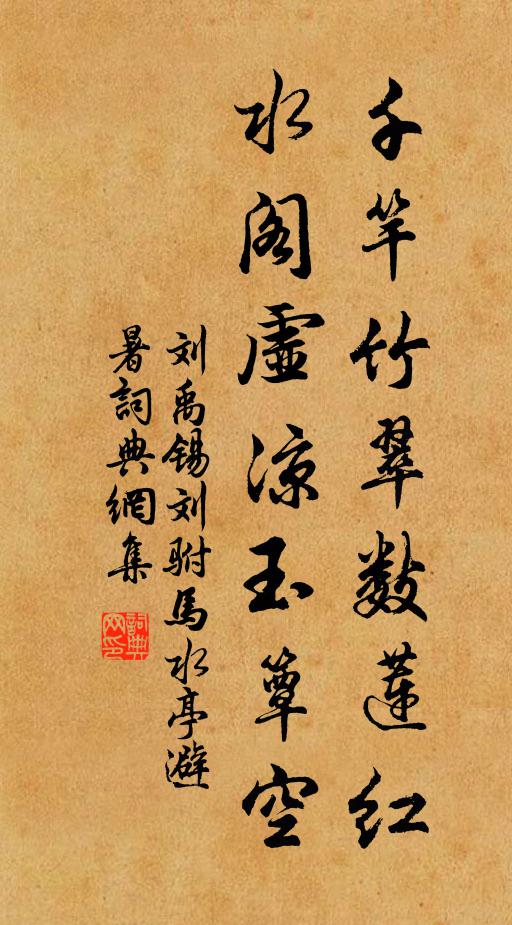 千竿竹翠数莲红
水阁虚凉玉簟空
刘禹锡刘驸马水亭避
暑詞典網集
詞典
网印